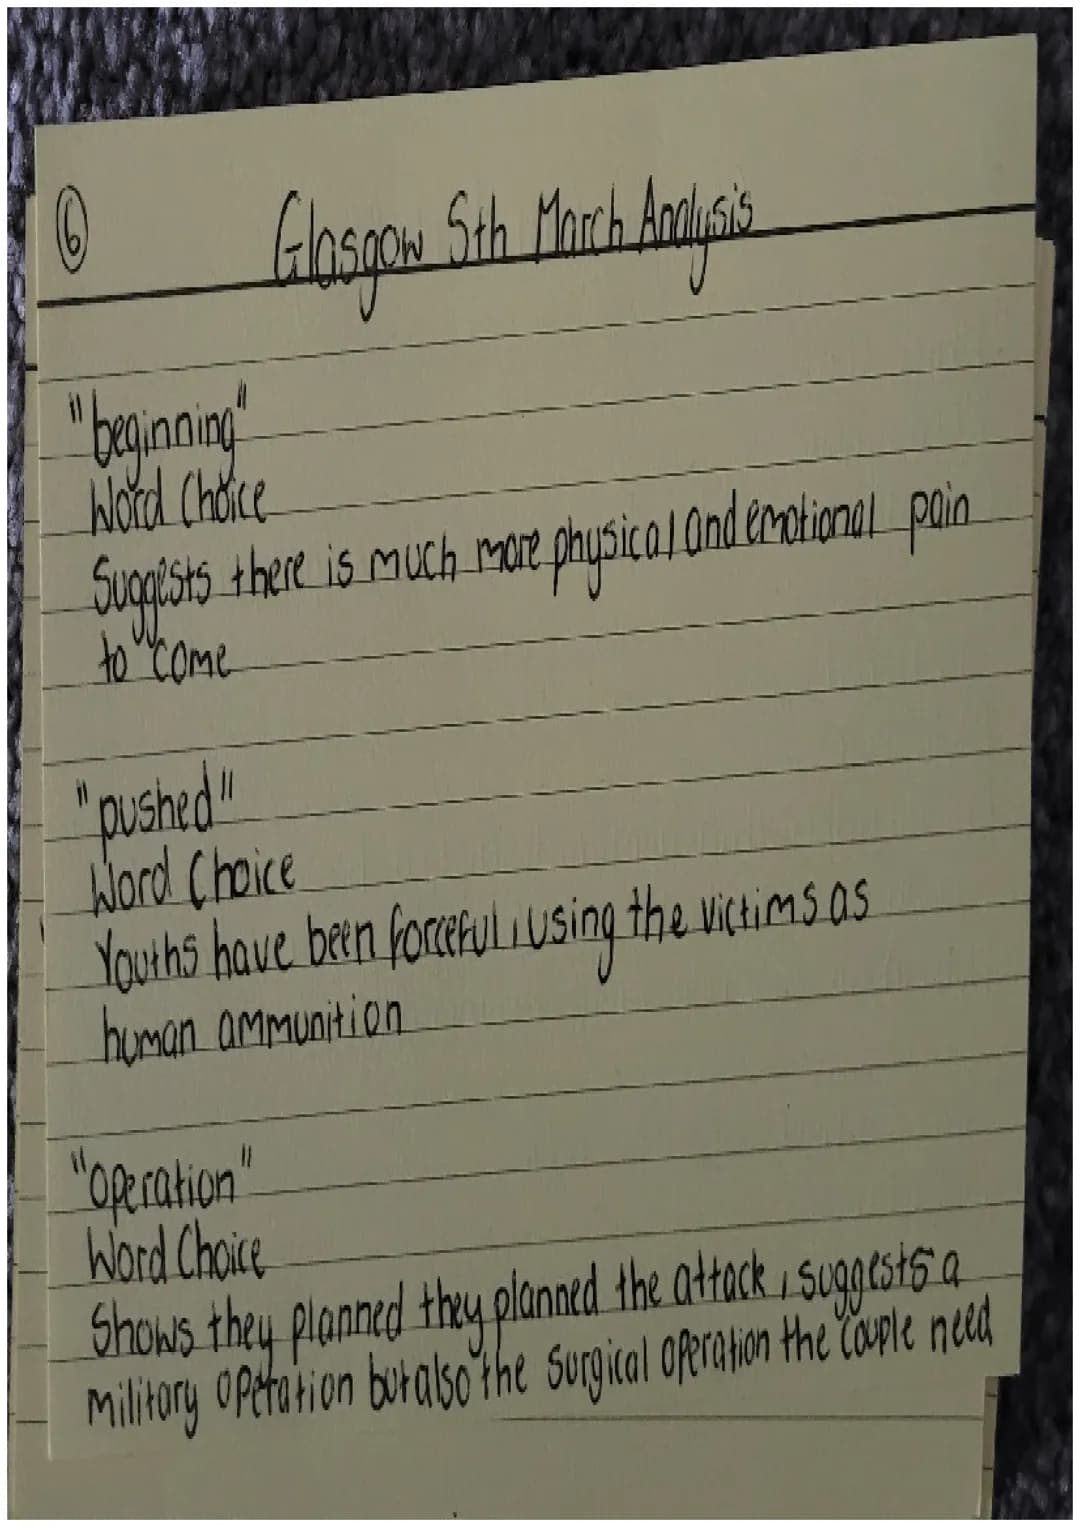 6
Glasgow 5th March Analysis
"beginning"
Word Choice
Suggests there is much more physical and emotional pain
to come
"pushed"
Word Choice
Youths have been forceful, using the victims as
human ammunition
"operation"
Word Choice
Shows they planned they planned the attack, suggests a
military operation but also the surgical operation the couple need